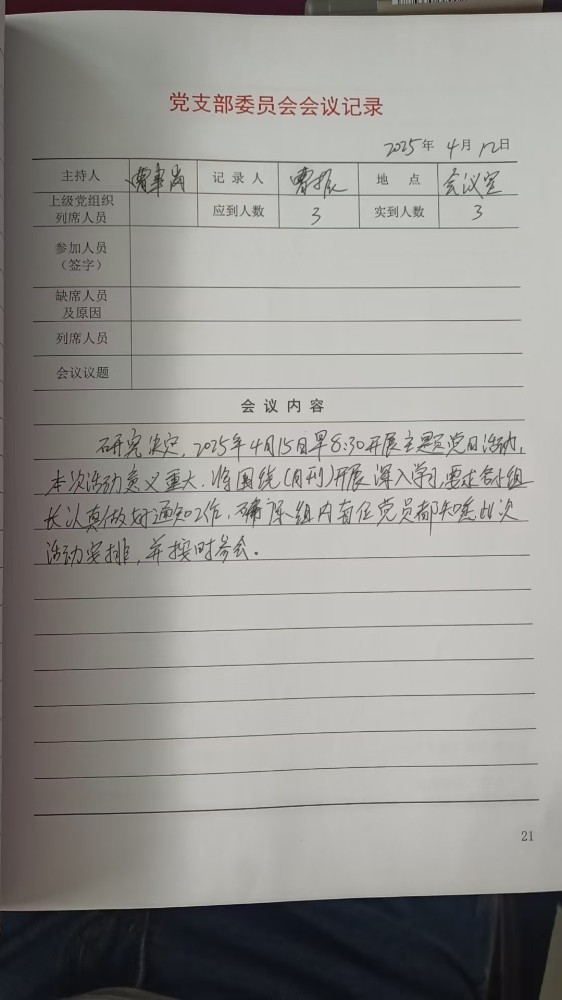 党支部委员会会议记录
2025年 4月12日
主持人 记录人 曹振 地点 会议室
上级党组织列席人员 应到人数 3 实到人数 3
参加人员（签字）
缺席人员及原因
列席人员
会议议题
会议内容
研究决定，2025年4月15日早8:30开展主题党日活动，
本次活动意义重大，将围绕(月刊)开展深入学习，要求各小组
长认真做好通知工作，确保组内每位党员都知悉此次
活动安排，并按时参会。
21